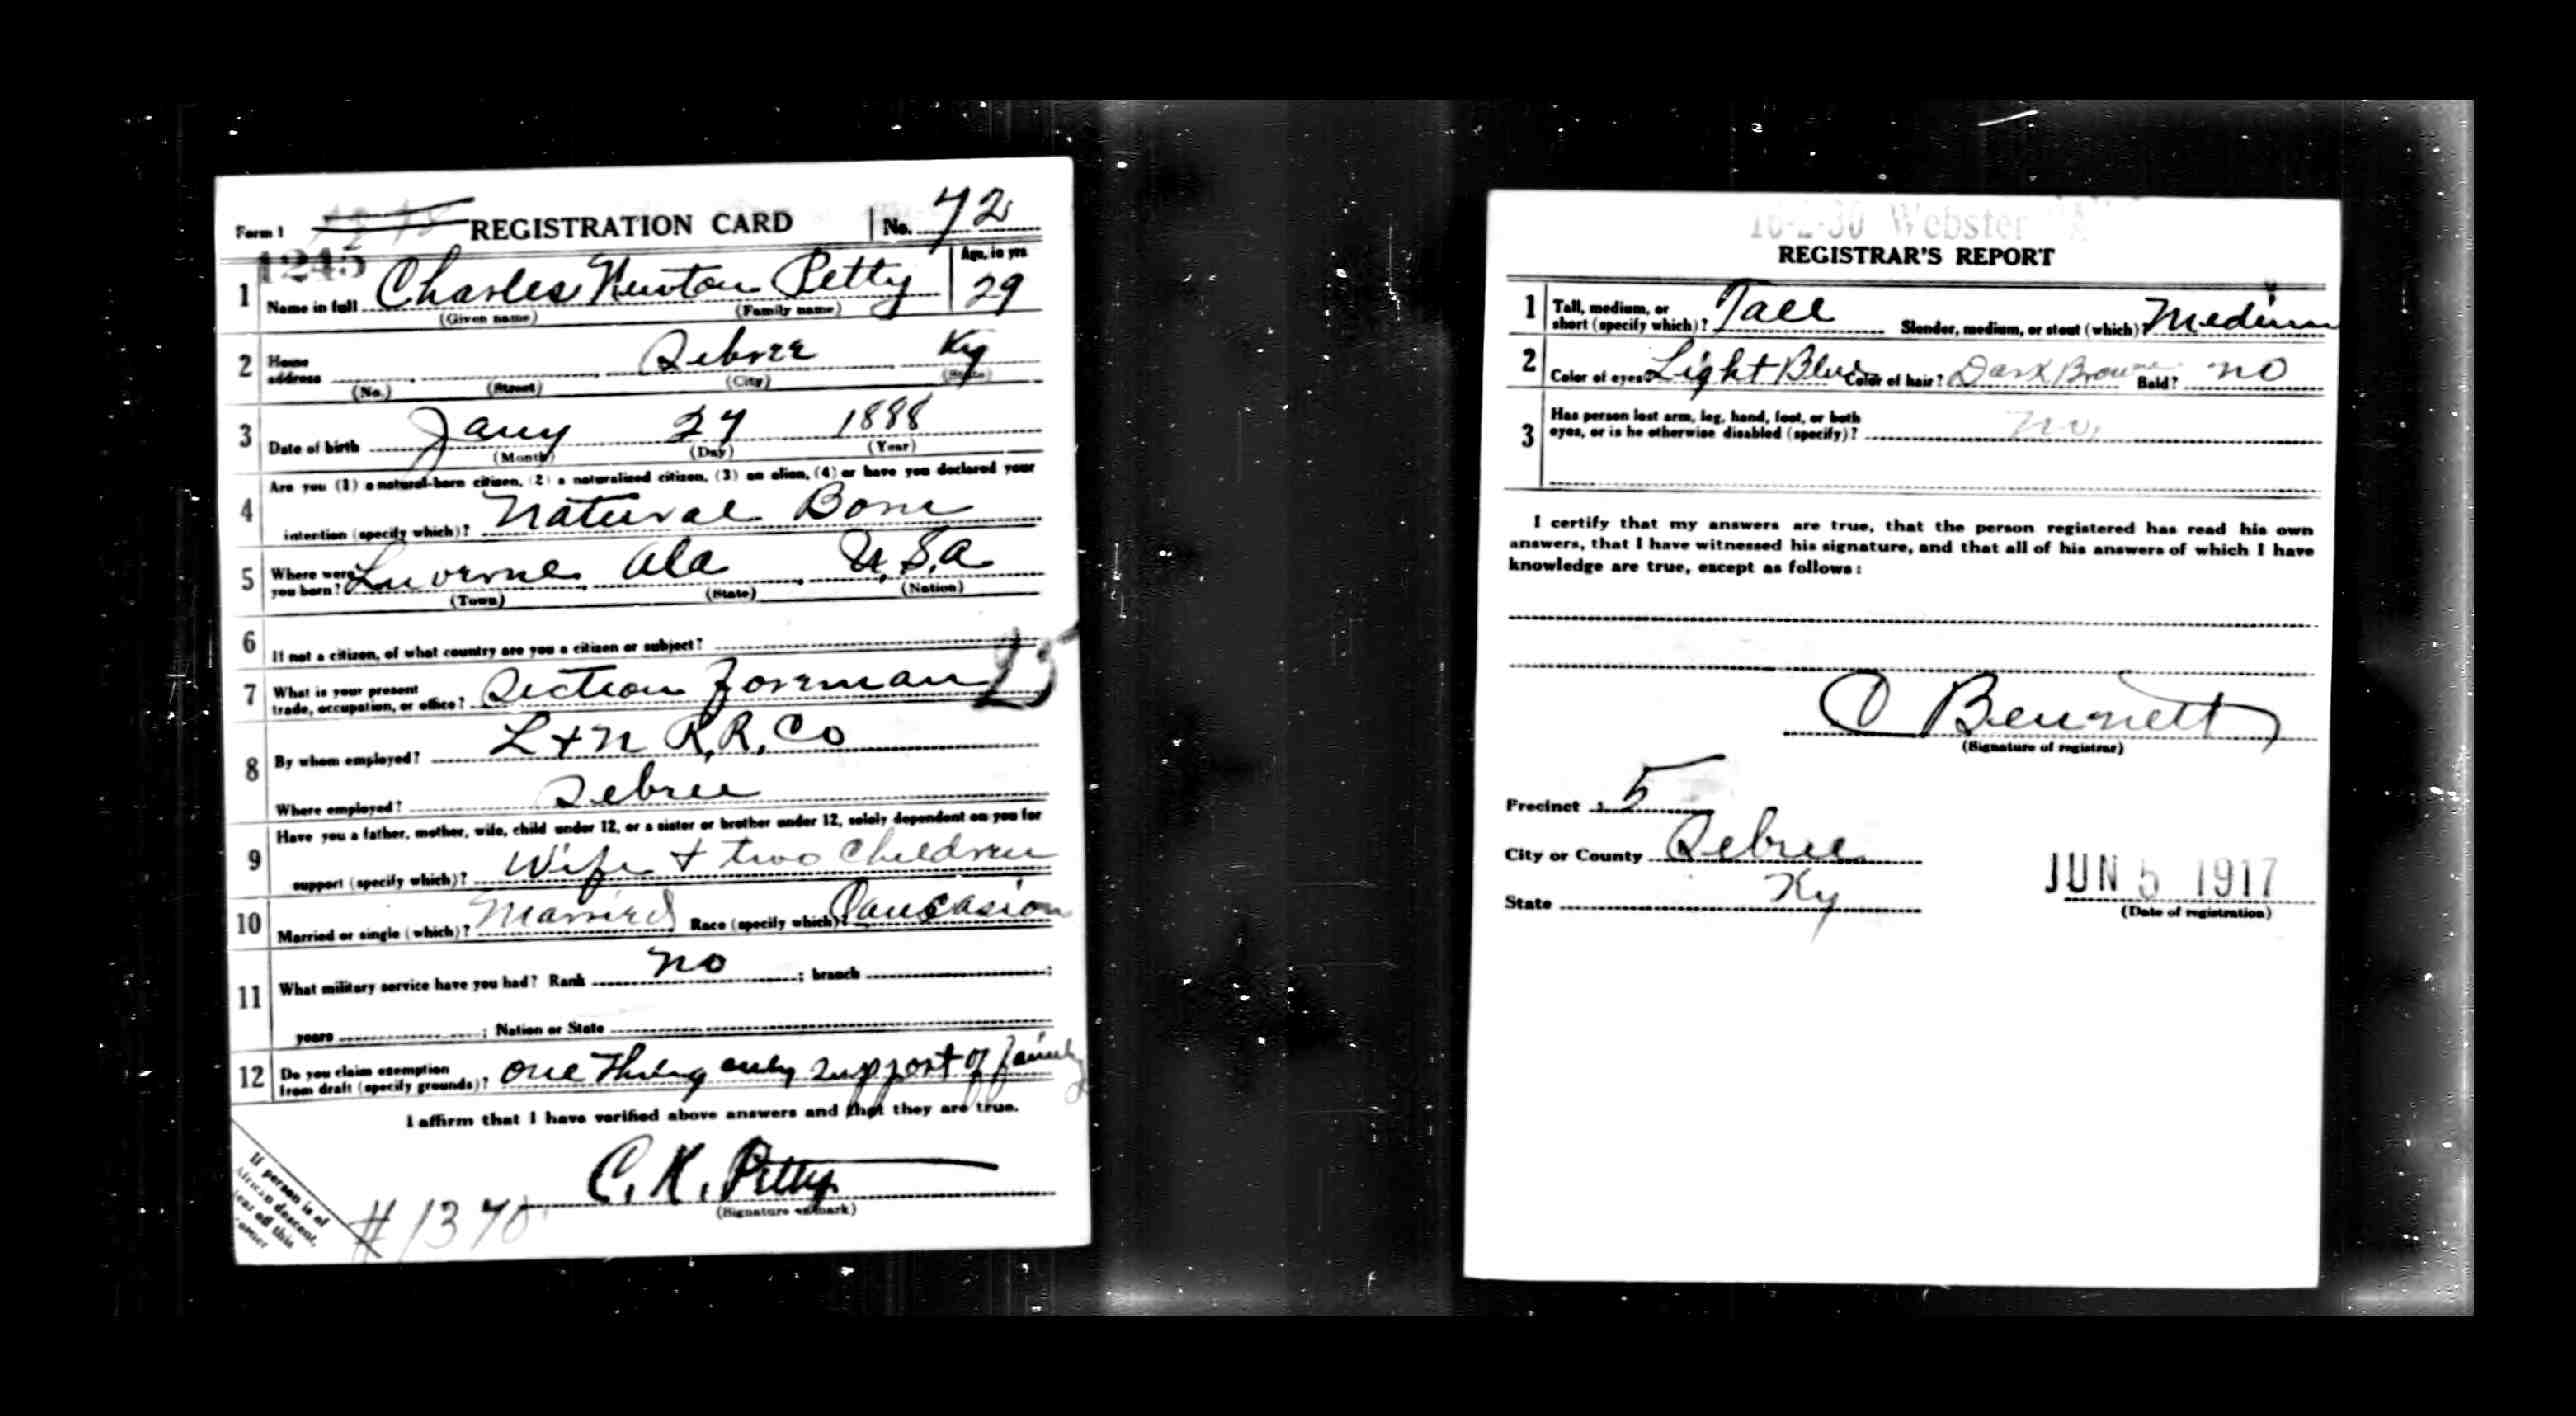 Form 1 REGISTRATION CARD No. 72
1245
1 Name in full Charles Newton Petty Age, in yrs 29
(Given name) (Family name)
2 Home address Sebree Ky
(No.) (Street) (City) (State)
3 Date of birth Jany 27 1888
(Month) (Day) (Year)
Are you (1) a natural-born citizen, (2) a naturalized citizen, (3) an alien, (4) or have you declared your
4 intention (specify which)? Natural Born
5 Where were you born? Luverne Ala U.S.a
(Town) (State) (Nation)
6 If not a citizen, of what country are you a citizen or subject?
7 What is your present trade, occupation, or office? Section Foreman 23
8 By whom employed? L + N R.R. Co
Where employed? Sebree
Have you a father, mother, wife, child under 12, or a sister or brother under 12, solely dependent on you for
9 support (specify which)? Wife + two Children
10 Married or single (which)? Married Race (specify which)? Caucasion
11 What military service have you had? Rank no ; branch ;
years ; Nation or State
12 Do you claim exemption from draft (specify grounds)? one Thing only support of family
I affirm that I have verified above answers and that they are true.
C. N. Petty
(Signature or mark)
If person is of
African descent,
tear off this
corner
#1370
Webster
REGISTRAR'S REPORT
1 Tall, medium, or short (specify which)? Tall Slender, medium, or stout (which)? Medium
2 Color of eyes? Light Blue Color of hair? Dark Brown Bald? no
3 Has person lost arm, leg, hand, foot, or both
eyes, or is he otherwise disabled (specify)? no
I certify that my answers are true, that the person registered has read his own
answers, that I have witnessed his signature, and that all of his answers of which I have
knowledge are true, except as follows:
C Bennett
(Signature of registrar)
Precinct 5
City or County Sebree
State Ky
JUN 5 1917
(Date of registration)